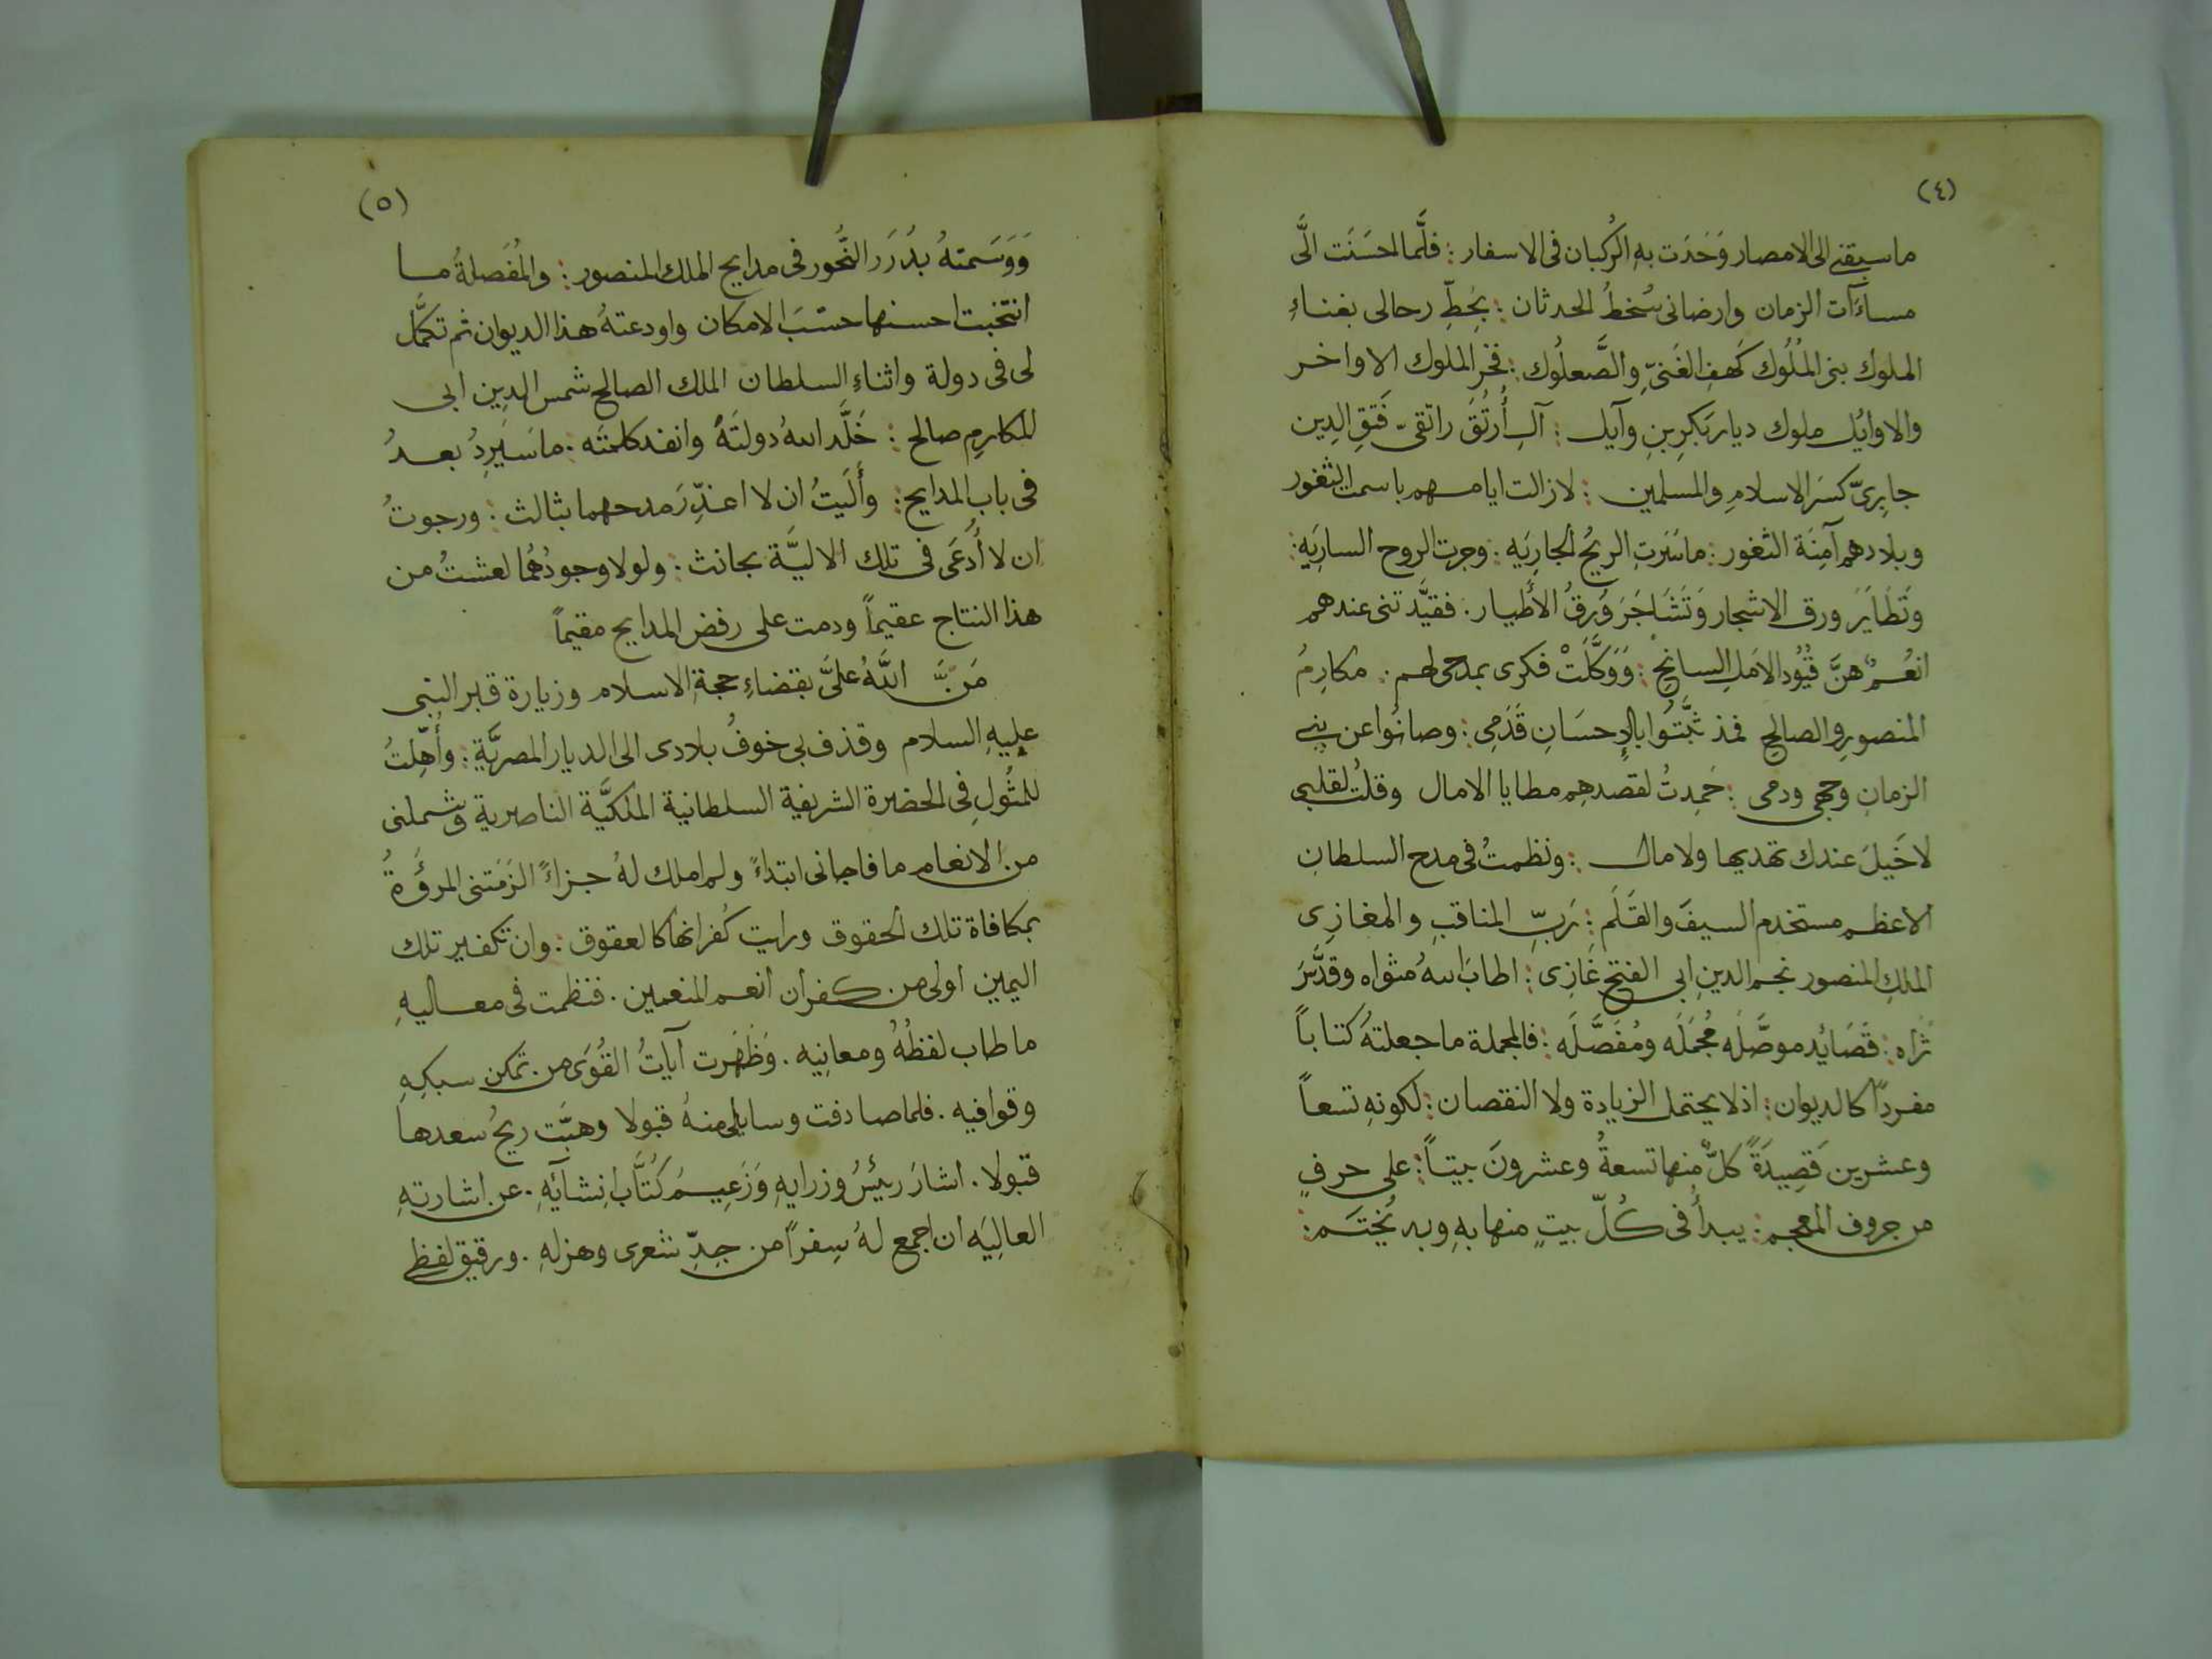 (٤)
ما سبقني الى الامصار وَحَدَت بهِ الرُكبان فى الاسفار : فلَّما احسَنَت الَّى
مساءَآت الزمان وارضانى سُخطُ الحدثان : بحَطِّ رحالى بفناءِ
الملوك بنى المُلُوك كَهفِ الغَنىِّ والصَّعلُوك : فخرِ الملوك الاواخر
والاوايُل ملوك ديار بَكرِ بنِ وآيل : آلِ أُرتُقَ راتقىّ فَتقِ الدِين
جابِرىّ كسَرَ الاسلامِ والمسلمين : لازالت ايامهم باسمة الثغور
وبلادهم آمِنَة الثغور : ما سَرَتِ الريحُ الجارِيَه : وجرت الروح السارِيَه :
وَتَطَايَرَ ورق الاشجار وَتَشَاجَرَ وُرقُ الأطيار : فقيَّدتنى عندهم
انعُمٌ هنَّ قُيُود الامَلِ السانحِ : وَوَكَّلَتْ فكرى بمدحى لهم : مكارِمُ
المنصورِ والصالحِ فمذ ثبَّتُوا بالإحسَانِ قَدَمِى : وصانُوا عن بني
الزمانِ وجهى ودمى : حَمِدتُ لقصدهِم مطايا الامال وقلتُ لقلبى
لا خَيلَ عندك تهديها ولا مال : ونظمتُ فى مدح السلطانِ
الاعظم مستخدم السيفَ والقَلَم : رَبِّ المناقبِ والمغازِى
الملكِ المنصور نجم الدينِ ابى الفتح غازِى : اطابَ اللهُ مثواه وقدَّسَ
ثراه : قَصَايُد موصَّلَه مُجمَلَه ومُفَصَّلَه : فالمجملة ما جعلتهُ كتاباً
مفرداً كالديوان : اذ لا يحتمل الزيادة ولا النقصان : لكونهِ تسعاً
وعشرين قَصِيدَةً كلٌّ منها تسعةُ وعشرونَ بيتاً : على حرفٍ
من حروف المعجم : يبدأُ فى كُلّ بيتٍ منها بهِ وبه يُختَم :
(٥)
وَوَسَمتهُ بدُرَر النُّحُور فى مدايح الملك المنصور : والمُفَصلةُ ما
انتخبت احسنها حسْبَ الامكان واودعتهُ هذا الديوان ثم تكمَّل
لى فى دولة واثناءِ السلطان الملك الصالح شمس الدِين ابى
المكارمِ صالح : خَلَّد اللهُ دولتَهُ وانفد كلمتَه : ما سَيَرِدُ بعدُ
فى باب المدايح : وأَلَيتُ ان لا اعذِّرَ مدحهما بثالث : ورجوتُ
ان لا أُدعَى فى تلك الاليَّة بحانث : ولولا وجودُهُما لعشتُ من
هذا النتاج عقيماً ودمت على رفض المدايح مقيماً
مَنَّ اللَّهُ علىَّ بقضاءِ حجةِ الاسلام وزيارة قبر النبى
عليهِ السلام وقذف بى خوفُ بلادى الى الديار المصريَّةِ : وأُهِّلتُ
للمثُولِ فى الحضرة الشريفة السلطانية الملكيَّة الناصرية وشملنى
من الانعام ما فاجانى ابتداءً ولم املك لهُ جزاءً الزَمَتنى المروَّةُ
بمكافاة تلك الحقوق ورايت كُفرانها كالعقوق : وان تكفير تلك
اليمين اولى من كفران انعم المنعمين . فنظمت فى معاليهِ
ما طاب لفظُهُ ومعانِيه . وَظَهَرت آياتُ القُوَى من تمكن سبكِهِ
وقوافيه . فلما صادفت وسايلى منهُ قبولا وهبَّت ريحُ سعدها
قبولا . اشارَ رئيُس وزرايهِ وَزَعِيمُ كُتَّاب انِشآئِهِ . عن اشارتهِ
العالِيَه ان اجمع لهُ سِفراً من جِدِّ شعرى وهزلهِ . ورقيق لفظي